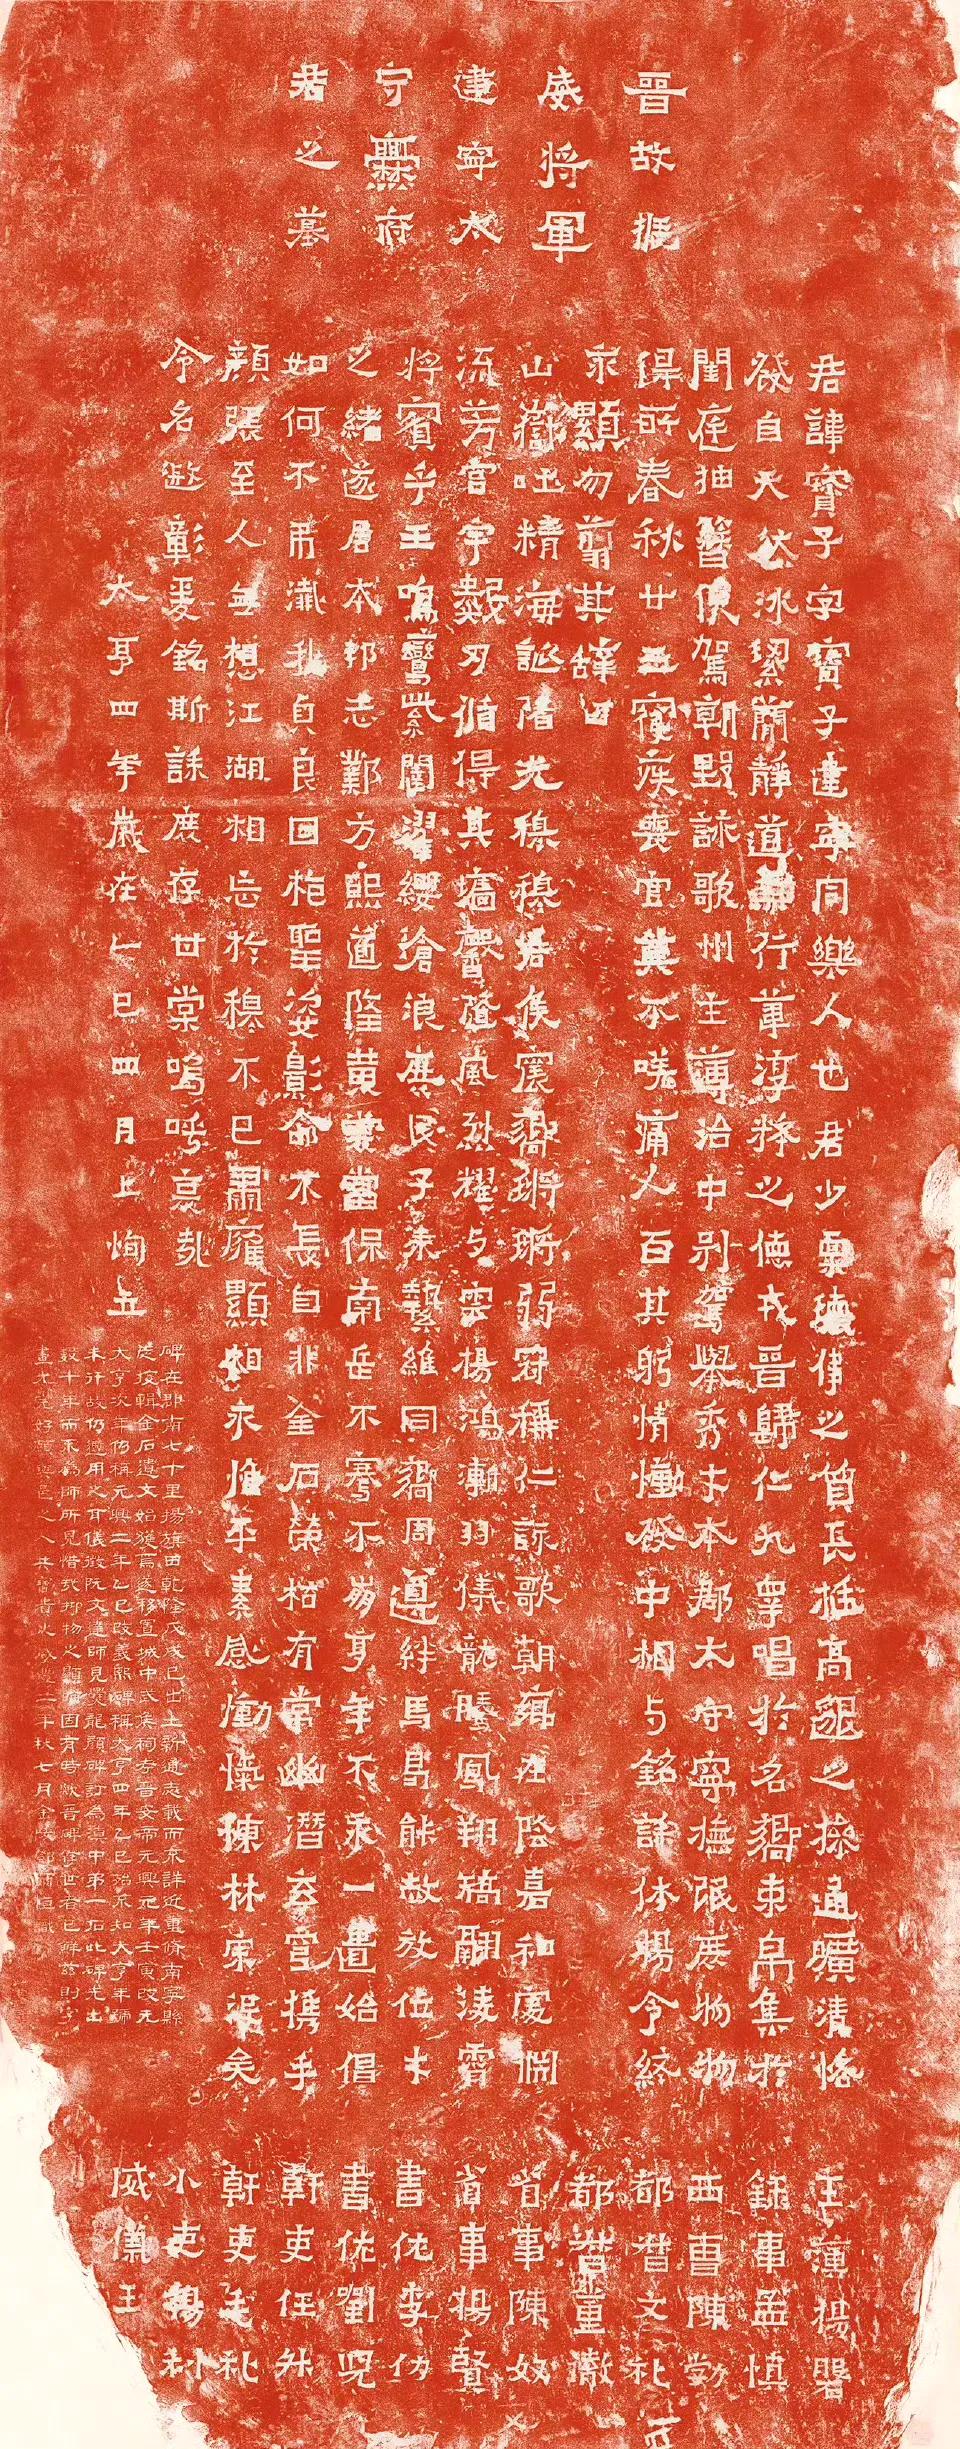 晉故振
威將軍
建寧太
守爨府
君之墓
君諱寶子字寶子建寧同樂人也君少稟瓌偉之質長挺高邈之操通曠清恪
發自天然冰絜簡靜道兼行葦淳粹之德戎晉歸仁九皐唱於名嚮束帛集於
閨庭抽簪俟駕朝野詠歌州主簿治中别駕舉秀才本郡太守寧撫氓庶物物
得所春秋廿五寢疾喪官莫不嗟痛人百其躬情慟發中相与銘誄休揚令終
永顯勿翦其辭曰
山嶽吐精海誕陼光穆穆君侯震嚮鏘鏘弱冠稱仁詠歌朝鄉在陰嘉和處淵
流芳宮宇數刃循得其墻馨隨風烈耀与雲揚鴻漸羽儀龍騰鳳翔矯翮淩霄
將賓乎王鳴鸞紫闥濯纓滄浪庶民子來縶維同嚮周遵絆馬曷能赦放位才
之緒遂居本邦志鄴方熙道隆黄裳當保南岳不騫不崩享年不永一匱始倡
如何不弔殲我貞良回抱聖姿影命不長自非金石榮枯有常幽潛玄穹携手
顏張至人無想江湖相忘於穆不已肅雍顯相永惟平素感慟愾慷林宗没矣
令名遐彰爰銘斯誄庶存甘棠嗚呼哀哉
大亨四年歲在乙巳四月上恂立
碑在郡南七十里揚旗田乾隆戊戌已出土新通志載而不詳近重修南寧縣
志搜輯金石遺文始獲焉遂移置城中武侯祠考晉安帝元興元年壬寅改元
大亨次年仍稱元興二年乙巳改義熙碑稱大亨四年乙巳殆不知大亨年號
未行故仍遵用之耳儀徵阮文達師見爨龍顏碑訂為滇中第一石此碑先出
數十年而不為師所見惜哉抑物之顯晦固有時歟晉碑存世者已鮮茲則字
畫尤完好願與邑之人共寶貴之咸豐二年秋七月金陵鄧爾恒識
主簿楊磐
錄事孟慎
西曹陳勃
都督文礼
都督董徹
省事陳奴
省事楊賢
書佐李仂
書佐劉兒
幹吏任升
幹吏毛礼
小吏楊利
威儀王